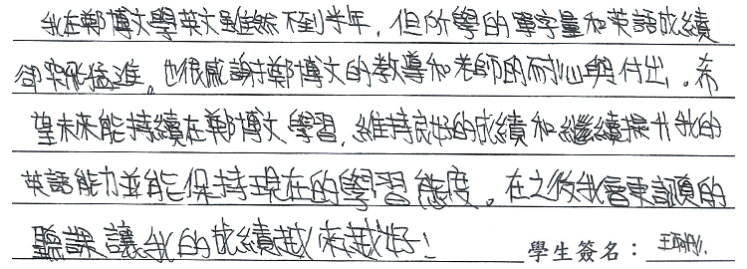 我在鄭博文學英文雖然不到半年，但所學的單字量和英語成績
卻突飛猛進。也很感謝鄭博文的教導和老師的耐心與付出。希
望未來能持續在鄭博文學習，維持良好的成績和繼續提升我的
英語能力並能保持現在的學習態度。在之後我會更認真的
聽課讓我的成績越來越好！ 學生簽名：王